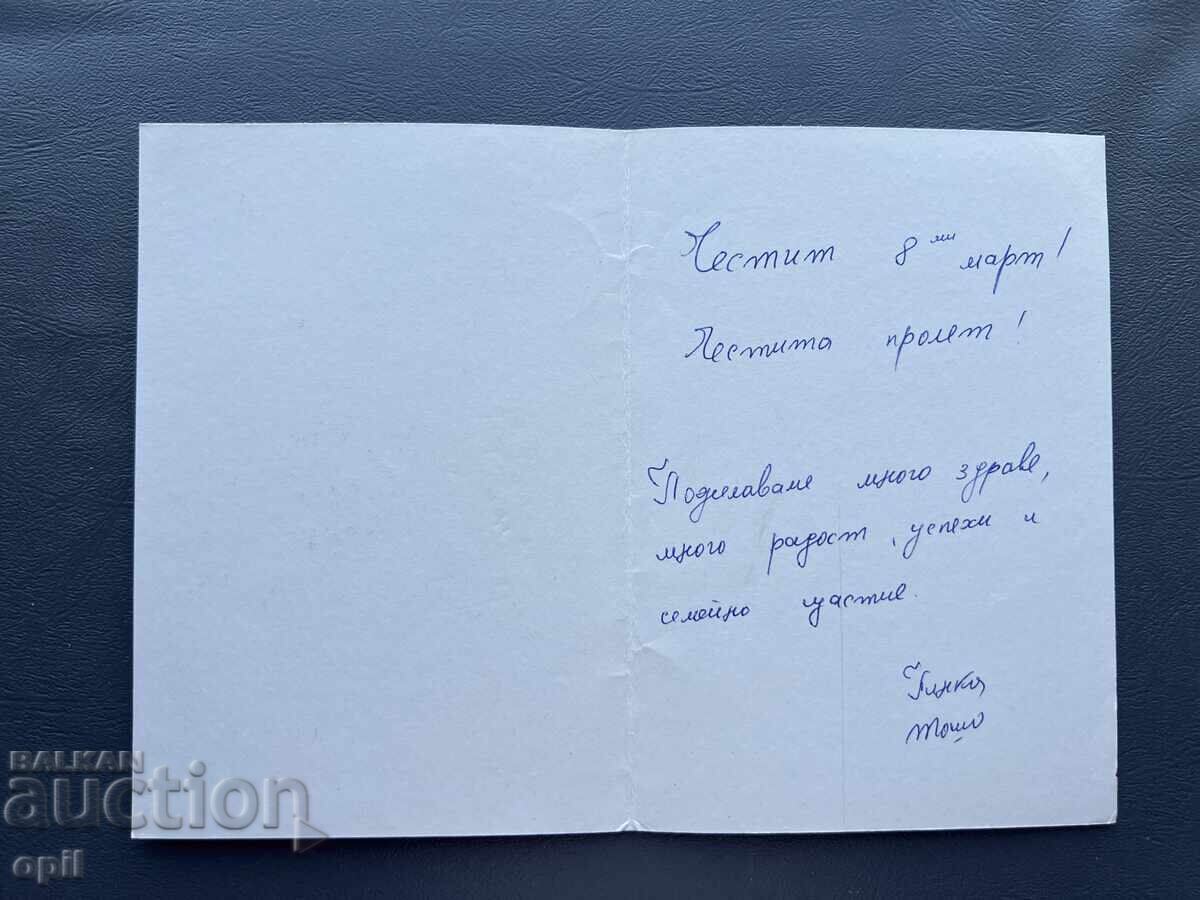 Честит 8ми март!
Честита пролет!
Пожелаваме много здраве,
много радост, успехи и
семейно щастие.
Гинка
Тошо
BALKAN
auction
opil